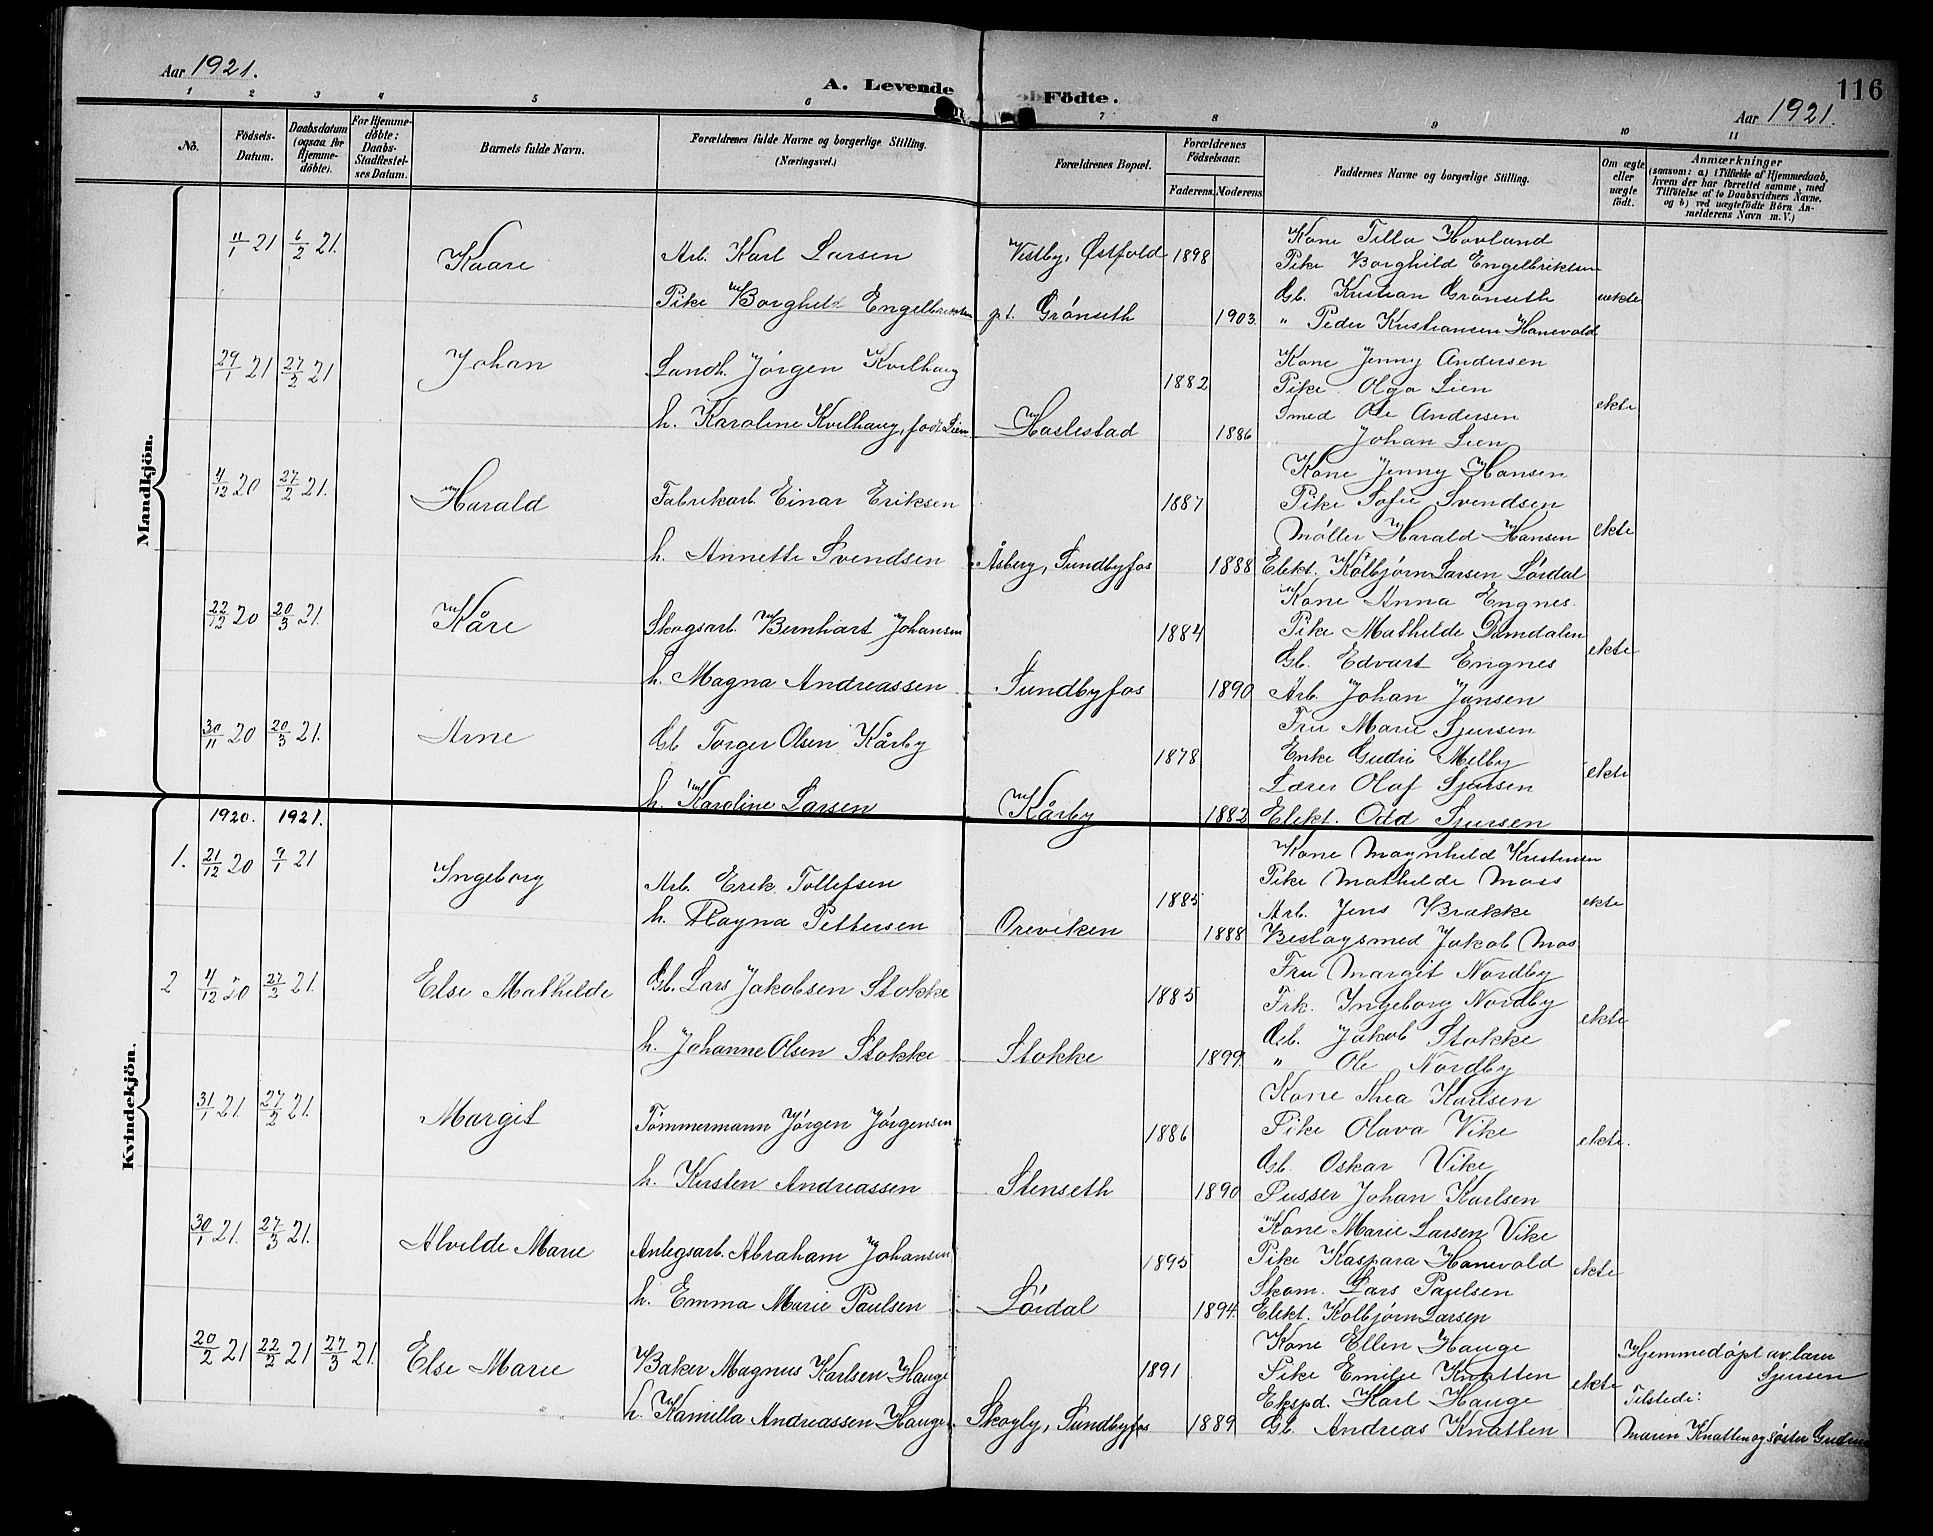 Aar 1921.
A. Levende Födte.
116
Aar 1921.
1 2 3 4 5 6 7 8 9 10 11
No.
Födsels-Datum.
Daabsdatum (ogsaa for Hjemme-döbte).
For Hjemme-döbte; Daabs-Stadfæstel-ses Datum.
Barnets fulde Navn.
Forældrenes fulde Navne og borgerlige Stilling. (Næringsvei.)
Forældrenes Bopæl.
Forældrenes Födselsaar.
Faderens. Moderens.
Faddernes Navne og borgerlige Stilling.
Om ægte eller uægte födt.
Anmærkninger
(saasom: a) i Tilfælde af Hjemmedaab,
hvem der har forrettet samme, med
Tilföielse af to Daabsvidners Navne,
og b) ved uægtefödte Börn An-
melderens Navn m. V.)
Mandkjön.
11/1 21 6/2 21. Kaare Arb. Karl Larsen Vestby, Østfold 1898
Pike Borghild Engelbriktsen pt. Grønseth 1903.
Kone Tilla Hovland
Pike Borghild Engelbriktsen
Gb. Kristian Grønseth uekte
" Peder Kristiansen Hanevold
29/1 21 27/2 21 Johan Landh. Jørgen Kvilhaug 1882
h. Karoline Kvilhaug, født Lien Haslestad 1886
Kone Jenny Andersen
Pike Olga Lien
Smed Ole Andersen ekte
Johan Lien
4/12 20 27/2 21. Harald Fabrikarb. Einar Eriksen 1887
h. Annette Svendsen Åsberg, Sundbyfos 1888
Kone Jenny Hansen
Pike Sofie Svendsen
Møller Harald Hansen ekte
Elekt. Kolbjørn Larsen Lørdal
22/12 20 20/3 21. Kåre Skogsarb. Bernhart Johansen 1884
h. Magna Andreassen Sundbyfos 1890
Kone Anna Engnes.
Pike Mathilde Damdalen
Gb. Edvart Engnes ekte
Arb. Johan Jansen
30/11 20 20/3 21. Arne Gb Torger Olsen Kårby 1878
h. Karoline Larsen Kårby 1882
Fru Marie Sjursen
Enke Gudri Melby
Lærer Olaf Sjursen ekte
Elekt. Odd Sjursen
Kvindekjön.
1920. 1921.
1. 21/12 20 9/1 21 Ingeborg Arb. Erik Tollefsen 1885
h. Magna Pettersen Oreviken 1888
Kone Magnhild Kristensen
Pike Mathilde Moss
Arb. Jens Brække ekte
Beslagsmed Jakob Mos
2 4/12 20 27/2 21. Else Mathilde Gb. Lars Jakobsen Stokke 1885
h. Johanne Olsen Stokke Stokke 1899
Fru Margit Nordby
Frk. Ingeborg Nordby
Gb. Jakob Stokke ekte
" Ole Nordby
31/1 21. 27/2 21. Margit Tømmermann Jørgen Jørgensen 1886
h. Kirsten Andreassen Stenseth 1890
Kone Thea Karlsen
Pike Olava Vike
Gb. Oskar Vike ekte.
Pusser Johan Karlsen
30/1 21. 27/3 21. Alvilde Marie Anlegsarb. Abraham Johansen 1895
h. Emma Marie Paulsen Lørdal 1894.
Kone Marie Larsen Vike
Pike Kaspara Hanevold
Skom. Lars Paulsen ekte
Elekt. Kolbjørn Larsen
20/2 21 22/2 21 27/3 21. Else Marie Baker Magnus Karlsen Hauge 1891
h. Kamilla Andreassen Hauge Skogly, Sundbyfos 1889
Kone Ellen Hauge
Pike Emilie Knatten
Ekspd. Karl Hauge ekte
Gb. Andreas Knatten
Hjemmedøpt av lærer
Sjursen
Tilstede:
Maren Knatten og søster Gudrun